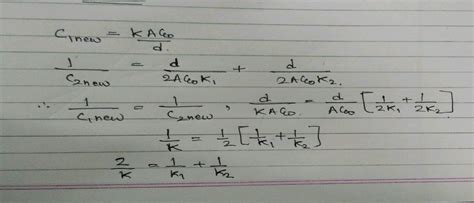 C₁new = KA∈₀/d.
1/C₂new = d/2A∈₀K₁ + d/2A∈₀K₂.
∴ 1/C₁new = 1/C₂new, d/KA∈₀. = d/A∈₀ [1/2K₁ + 1/2K₂]
1/K = 1/2 [1/K₁ + 1/K₂]
2/K = 1/K₁ + 1/K₂